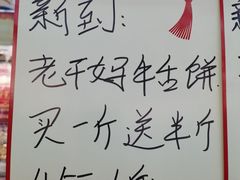 新到:
老干妈牛舌饼.
买一斤送半斤